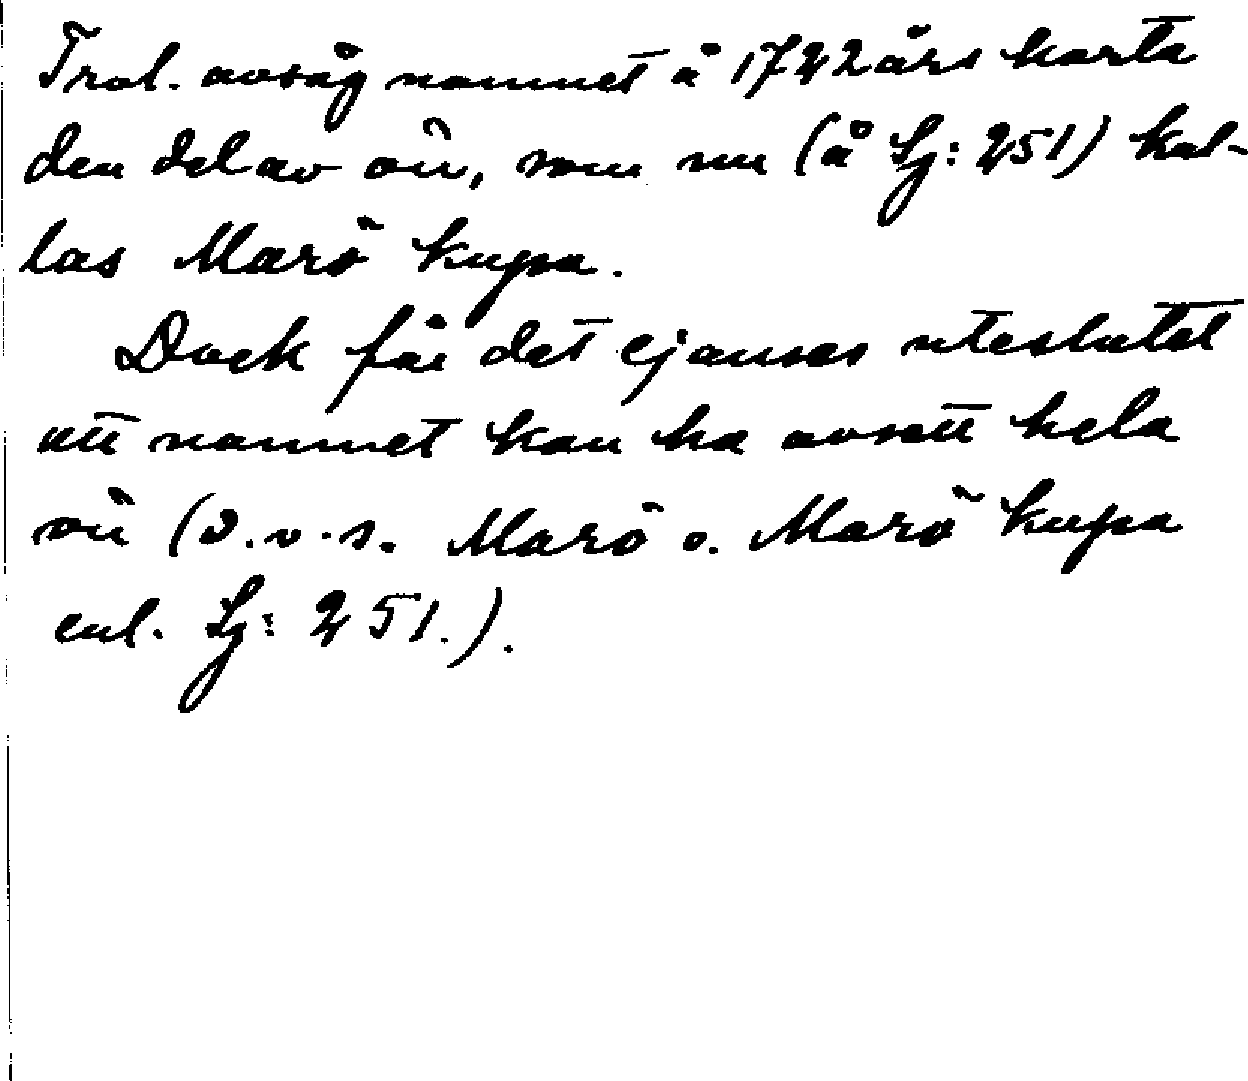 Trol. avsåg namnet å 1742 års karta
den del av ön, som nu (å Sj: 251) kal-
las Marö kupa.
Dock får det ej anses uteslutet
att namnet kan ha avsett hela
ön (d.v.s. Marö o. Marö kupa
enl. Sj: 251.).